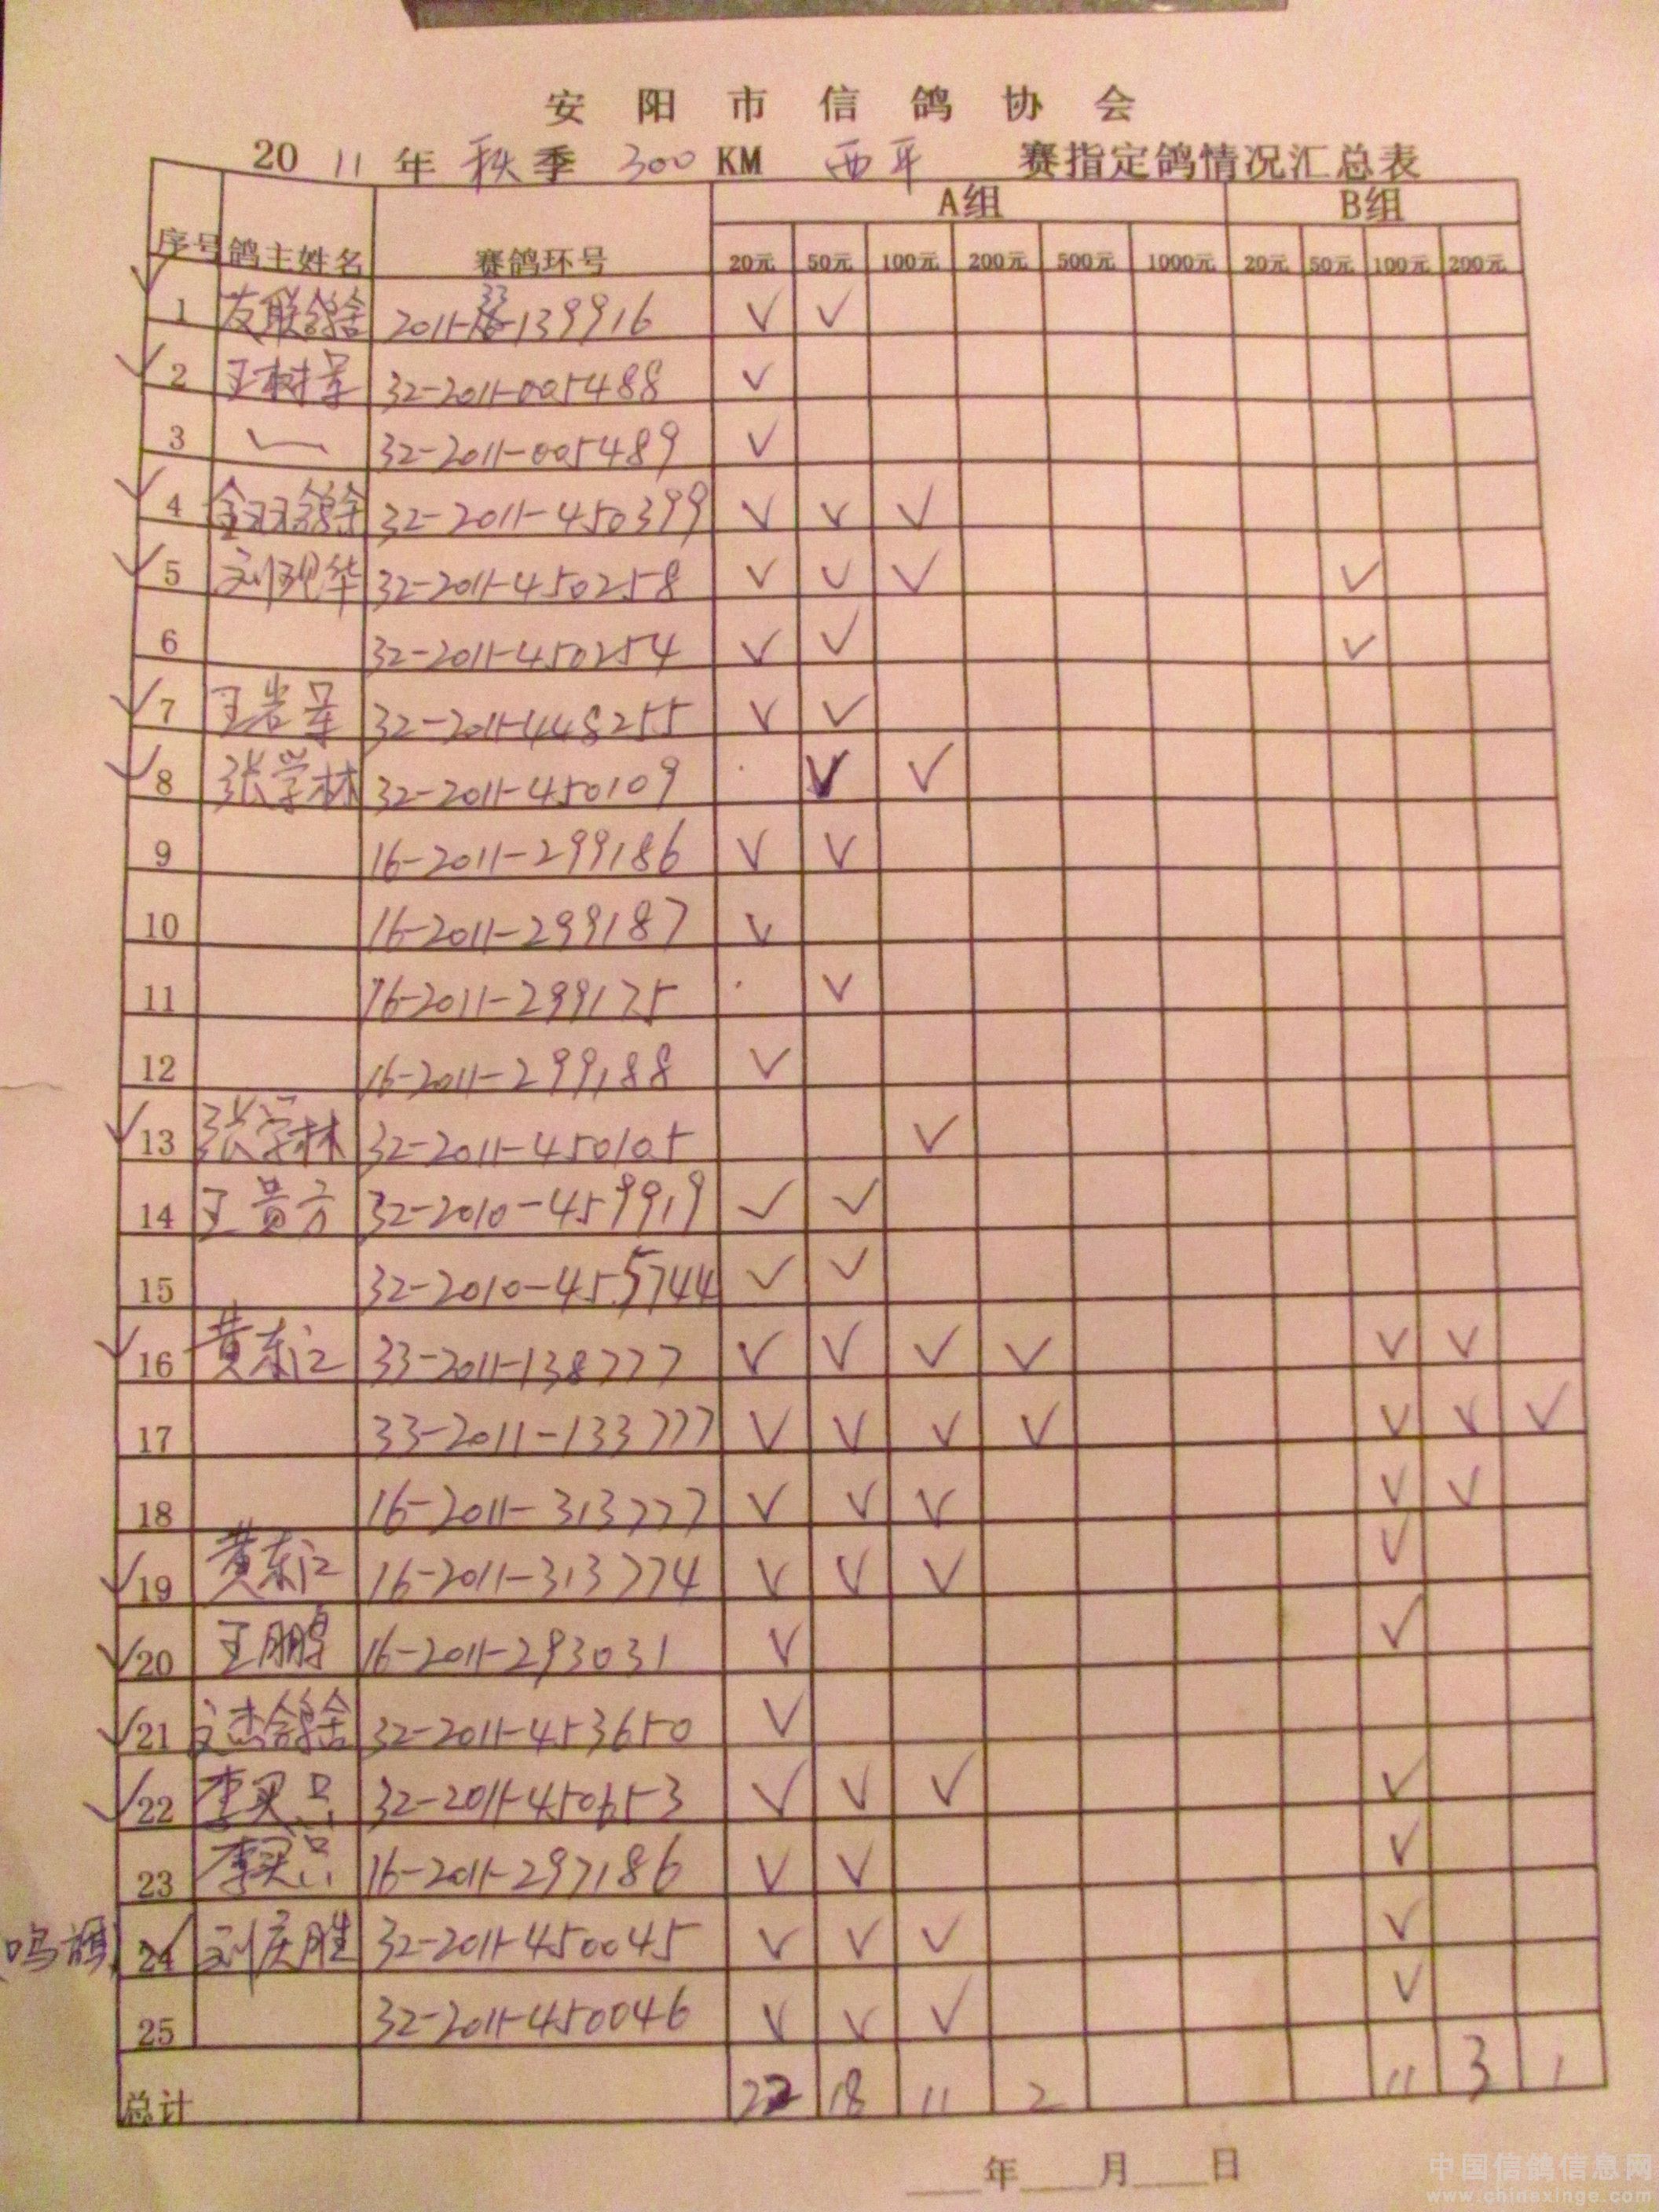 安阳市信鸽协会
2011年秋季300KM 西平 赛指定鸽情况汇总表
序号 鸽主姓名 赛鸽环号 A组 B组
20元 50元 100元 200元 500元 1000元 20元 50元 100元 200元
1 友联鸽舍 2011-33-139916 √ √
2 王树军 32-2011-005488 √
3 32-2011-005489 √
4 鸽舍 32-2011-450399 √ √ √
5 刘现华 32-2011-450258 √ √ √ √
6 32-2011-450254 √ √ √
7 王岩军 32-2011-448255 √ √
8 张学林 32-2011-450109 √ √
9 16-2011-299186 √ √
10 16-2011-299187 √
11 16-2011-299175 √
12 16-2011-299188 √
13 张学林 32-2011-450105 √
14 王贵方 32-2010-459919 √ √
15 32-2010-455744 √ √
16 黄东江 33-2011-138777 √ √ √ √ √ √
17 33-2011-133777 √ √ √ √ √ √ √
18 16-2011-313777 √ √ √ √ √
19 黄东江 16-2011-313774 √ √ √ √
20 王鹏 16-2011-293031 √ √
21 文杰鸽舍 32-2011-453650 √
22 李 32-2011-450653 √ √ √ √
23 李 16-2011-297186 √ √ √
24 刘庆胜 32-2011-450045 √ √ √ √
25 32-2011-450046 √ √ √ √
总计 22 18 11 2 11 3 1
年 月 日
中国信鸽信息网
www.chinaxinge.com